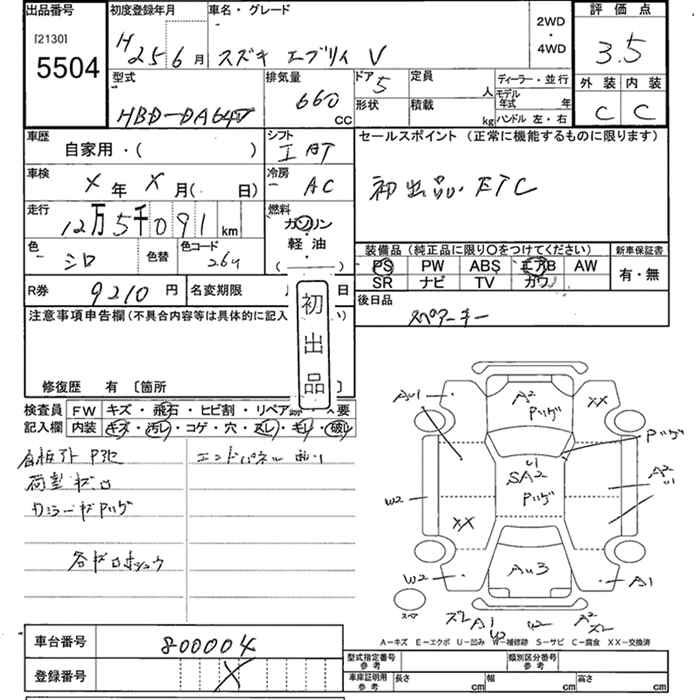 出品番号 初度登録年月 車名・グレード 評価点
[2130]
5504
H25年6月 スズキ エブリイ V
2WD
・
4WD
3.5
型式 排気量 ドア 定員 ディーラー・並行 外装 内装
HBD-DA64V 660 CC 5 人 モデル年式 年 C C
形状 積載 kg ハンドル 左・右
車歴 シフト セールスポイント(正常に機能するものに限ります)
自家用・( ) AT
車検 冷房 初出品 ETC
X年X月( 日) AC
走行 燃料
12万5千091km ガソリン
軽油
( )
色 色替 色コード 装備品(純正品に限り○をつけてください) 新車保証書
シロ 26U PS PW ABS エアB AW 有・無
SR ナビ TV カワ
R券 9210円 名変期限 日 後日品
初出品
スペアーキー
注意事項申告欄(不具合内容等は具体的に記入
修復歴 有 〔箇所
検査員 FW キズ・飛石・ヒビ割・リペア跡・X要
記入欄 内装 キズ・汚レ・コゲ・穴・スレ・キレ・破レ
エンドパネル
AU1 A2 Pリング XX
Pリング
U1
SA2
Pリング
A2
U1
W2
XX
W2 AU3 A1
スペア
A1 W2 A2
A-キズ E-エクボ U-凹み W-補修跡 S-サビ C-腐食 XX-交換済
車台番号 800004
登録番号 X
型式指定番号 参考 類別区分番号 参考
車庫証明用 参考 長さ cm 幅 cm 高さ cm